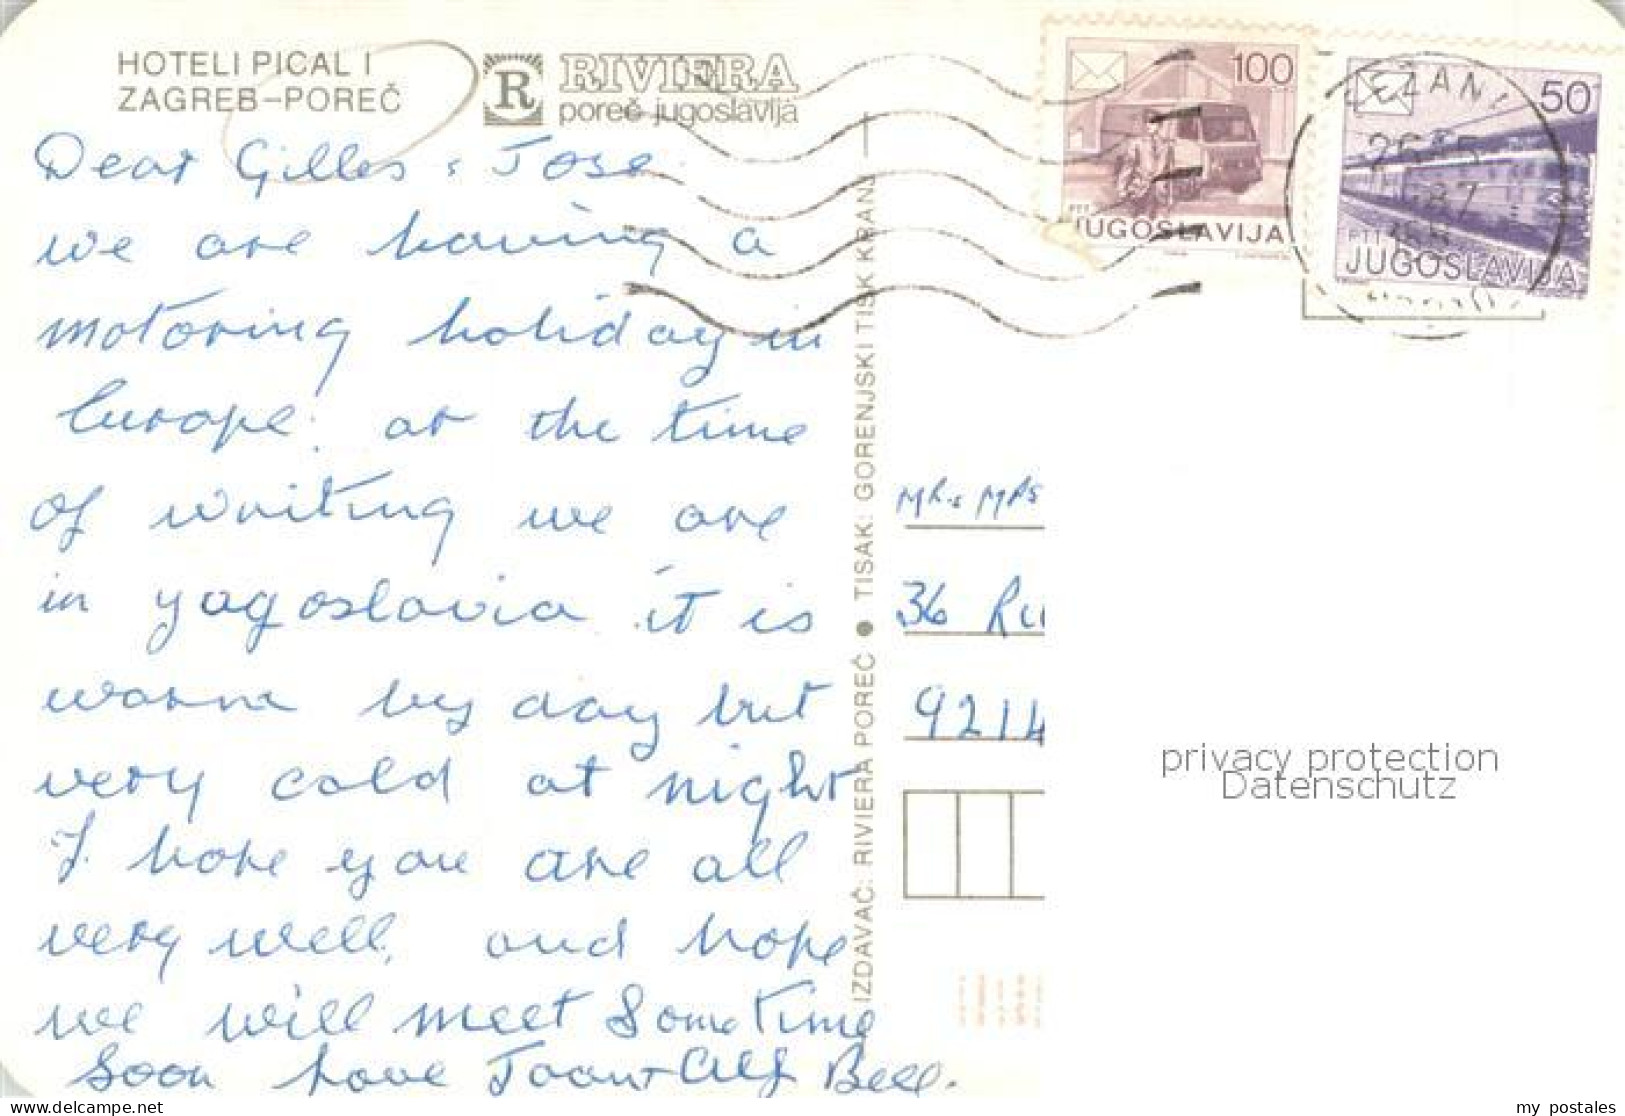 HOTELI PICAL I
ZAGREB–POREČ
R
RIVIERA
poreč jugoslavija
Dear Gilles & Jose
we are having a
motoring holiday in
Europe. at the time
of writing we are
in yagoslavia it is
warm by day but
very cold at night
I hope you are all
very well, and hope
we will meet Some time
Soon love Joan + Alf Bell.
IZDAVAČ: RIVIERA POREČ ● TISAK: GORENJSKI TISK KRANJ
100
PTT
JUGOSLAVIJA
50
PTT
JUGOSLAVIJA
87
MR & MRS
36 Ru
9214
privacy protection
Datenschutz
my postales
www.delcampe.net